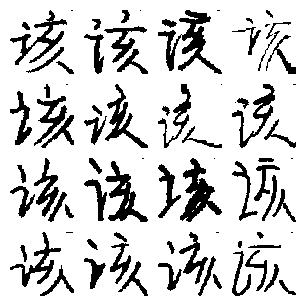 该该该该
该该该该
该该该该
该该该该